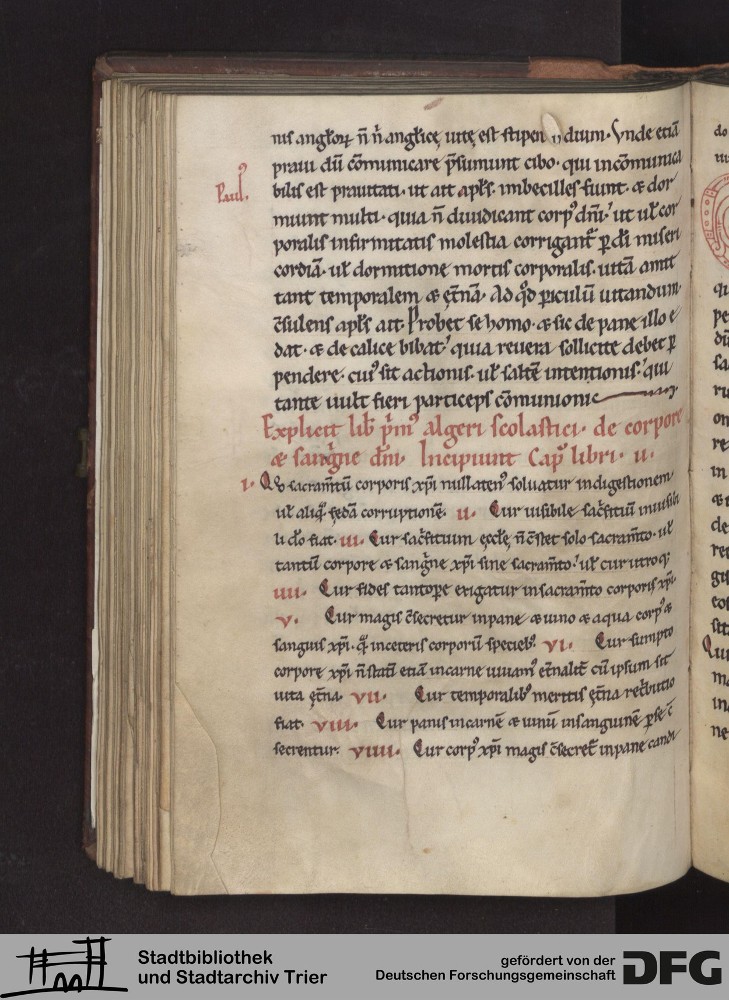 nis angłoꝝ n̄ n̄ anglicę uitę est stipen dium. Vnde etiā
praui dū cōmunicare p̄sumunt cibo. qui incōmunica
Paulꝰ.
bilis est prauitati. ut ait apłs. imbecilles fiunt. & dor
miunt multi. quia n̄ diuidicant corpꝰ dn̄i. ut uł cor
poralis infirmitatis molestia corrigant̄ ꝑ dī miseri
cordiā. uł dormitione mortis corporalis. uitā amit
tant temporalem & ęt̄nā. Ad qđ periculū uitandum
c̄sulens apłs ait. Probet se homo. & sic de pane illo e
dat. & de calice bibat. quia reuera sollicite debet ꝑ
pendere. cuiꝰ sit actionis. uł saltē intentionis. qui
tante uult fieri particeps cōmunionis
Explicit lib p̄mꝰ algeri scolastici. de corpore
& sanḡne dn̄i. Incipiunt Cap̄ libri. ii.
i. Qđ sacram̄tū corporis xp̄i nullatenꝰ soluatur in digestionem.
uł aliq̄ fęda corruptionē. ii. Cur uisibile sacfitiū inuisibi
li do fiat. iii. Cur sacfitium ęccłę. n̄ c̄stet solo sacram̄to. uł
tantū corpore & sanḡne xp̄i sine sacram̄to. uł cur utroq;
iiii. Cur fides tantopere exigatur in sacram̄to corporis xp̄i.
v. Cur magis c̄secretur in pane & uino & aqua corpꝰ &
sanguis xp̄i. q̄ in ceteris corporū specieb;. vi. Cur sumpto
corpore xp̄i n̄ statī etiā in carne uiuamꝰ ęt̄nalit̄. cū ipsum sit
uita ęt̄na. vii. Cur temporalibꝰ meritis ęt̄na ret̄butio
fiat. viii. Cur panis in carnē & uinū in sanguinē ꝑ se c̄
secrentur. viiii. Cur corpꝰ xp̄i magis c̄secret̄ in pane candi
Stadtbibliothek
und Stadtarchiv Trier
gefördert von der
Deutschen Forschungsgemeinschaft
DFG